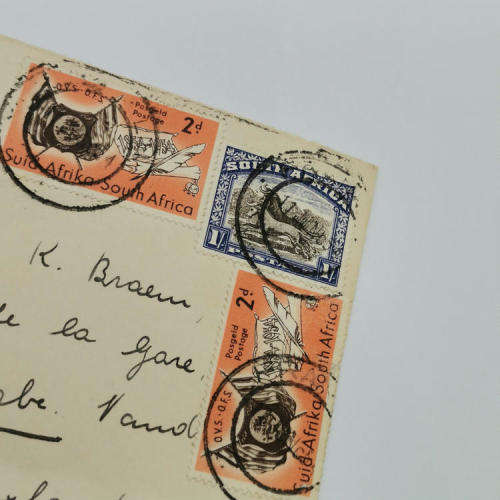 O.V.S - O.F.S
Posgeld
Postage
2d
Suid-Afrika South Africa
SOUTH AFRICA
1/- POSTAGE 1/-
K. Braem
de la Gare
2d
Posgeld
Postage
O.V.S - O.F.S
Suid-Afrika South Africa